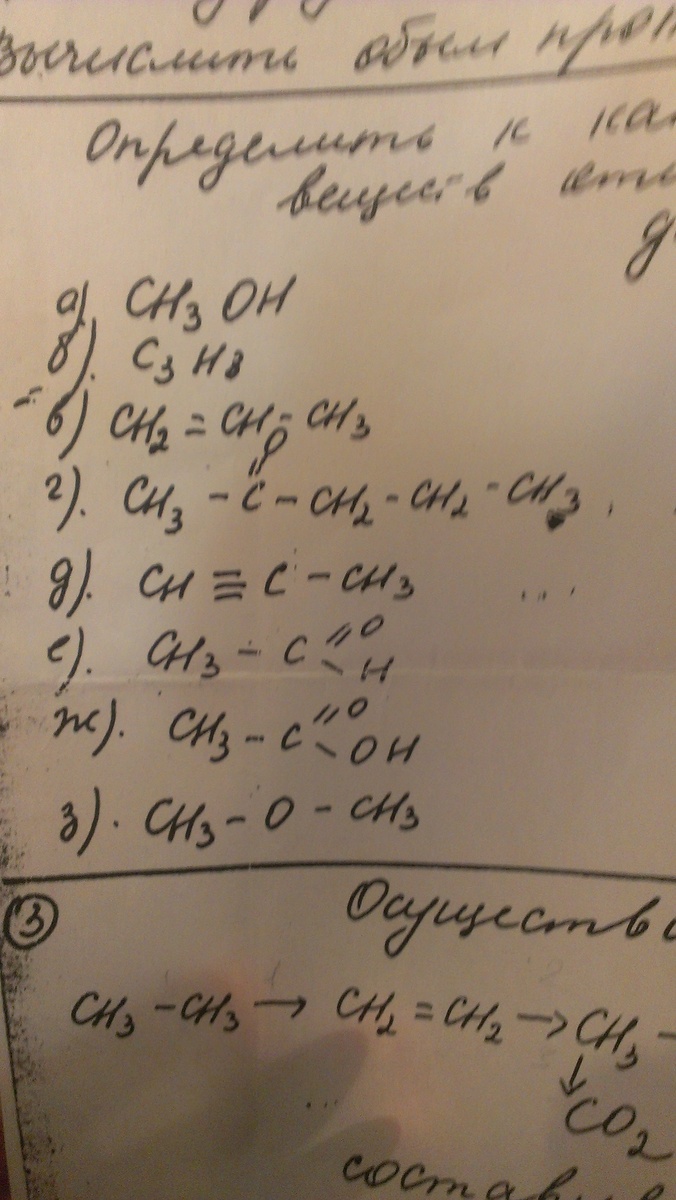 Вычислить обьем
Определить к
веществ
а) CH3 OH
б). C3 H8
в) CH2 = CH - CH3
O
г). CH3 - C - CH2 - CH2 - CH3
д). CH ≡ C - CH3
е). CH3 - C =O
- H
ж). CH3 - C =O
- OH
з). CH3 - O - CH3
3 Осуществ
CH3 - CH3 → CH2 = CH2 → CH3 -
↓
CO2